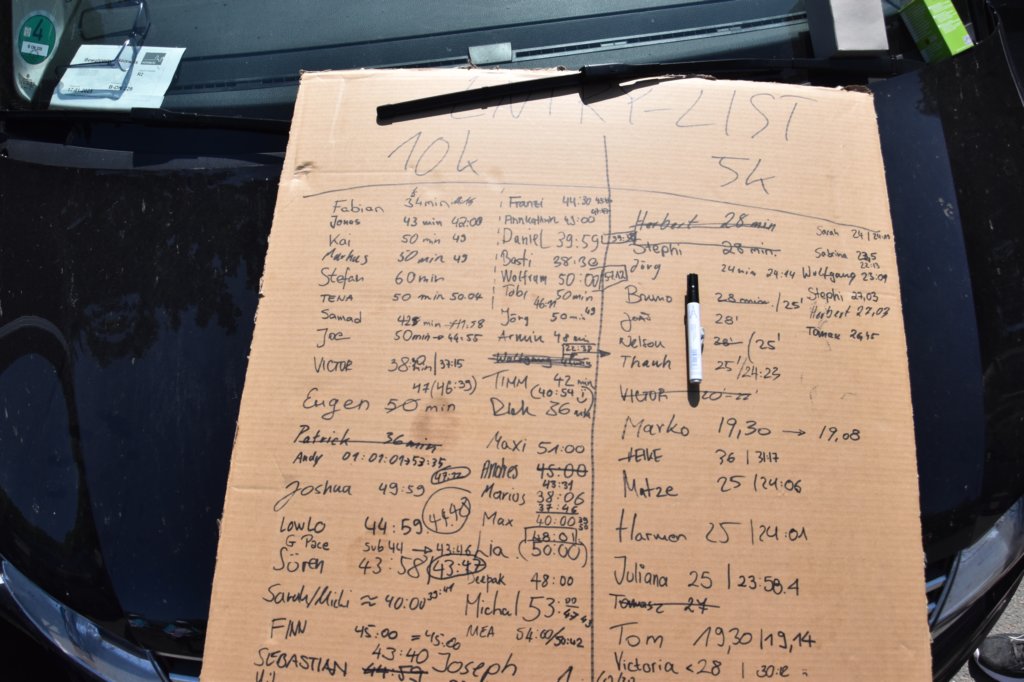 ENTRY-LIST
10k
5k
Fabian 34min
Jonas 43 min 42:00
Kai 50 min 49
Markus 50min 49
Stefan 60min
TENA 50 min 50.04
Samad
Joe 50min → 44:55
VICTOR 38 37:15
47(46:39)
Eugen 50 min
Patrick 36 min
Andy 01:01:01→53:35
47:22
Joshua 49:59
44:48
LowLo 44:59
G Pace sub 44 → 43:46
Sören 43:58 43:47
Sarah/Michi ≈ 40:00
FINN 45:00 = 45:00
43:40
SEBASTIAN 44:59
Franzi 44:30
Annkathrin 45:00
Daniel 39:59
Basti 38:30
Wolfram 50:00 52:12
Tobi 50min
46:11
Jörg 50min 49
Armin 48 min
Wolfgang
TIMM 42 min
(40:54)
Dirk 36 min
Maxi 51:00
Andres 45:00
43:31
Marius 38:06
37:46
Max 40:00
48:01
Lia (50:00)
Deepak 48:00
Michal 53:00
MEA 54:00/50:42
Joseph
Herbert 28 min
Stephi 28 min.
Jörg 24min 24:14
Bruno 28 min /25'
28'
Nelson 28' (25'
Thanh 25'/24:23
VICTOR
Marko 19,30 → 19,08
HEIKE 36 | 31:17
Matze 25 | 24:06
Harmen 25 | 24:01
Juliana 25 | 23:58.4
Tomasz 27
Tom 19,30 | 19,14
Victoria <28
Sarah 24
Sabrina
Wolfgang 23:09
Stephi 27,03
Herbert 27,03